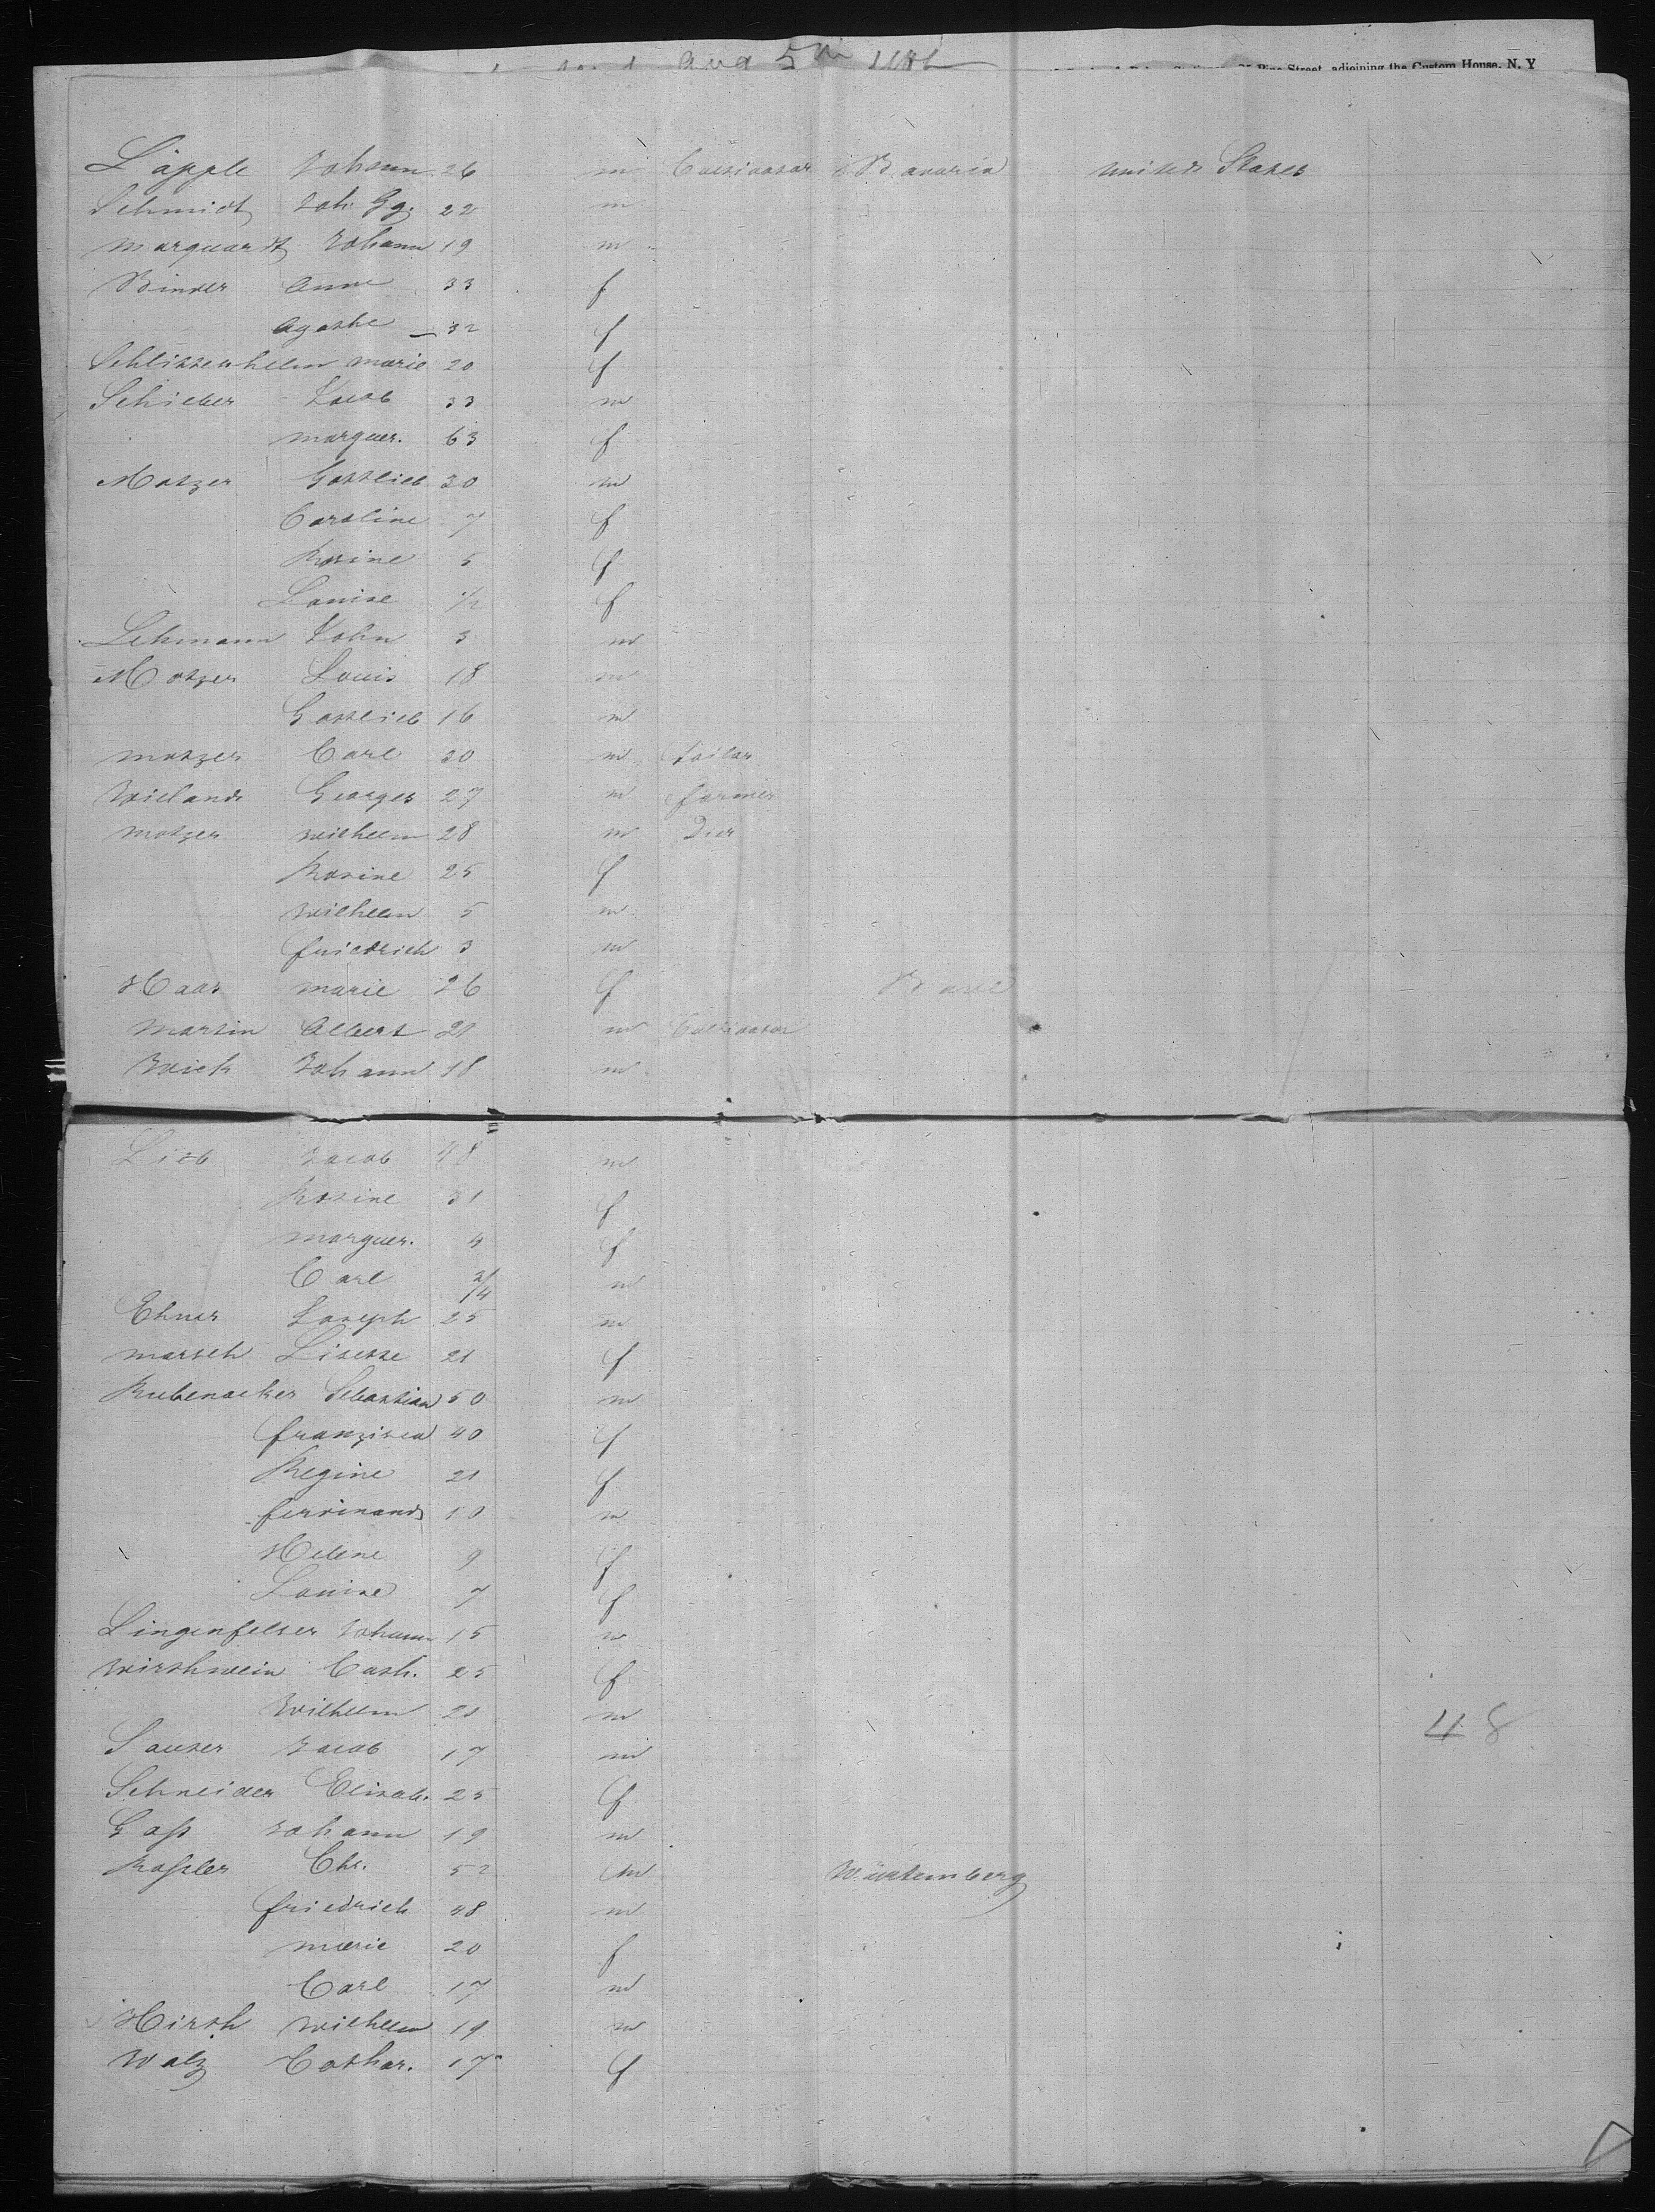 Aug 5th
Pine Street, adjoining the Custom House, N. Y
Läpple Johann 26 m Cultivator Bavaria United States
Schmidt Joh. Gg. 22 m
Marquardt Johann 19 m
Binder Anne 33 f
Agathe 32 f
Marie 20 f
Schieber Jacob 33 m
Marguer. 63 f
Motzer Gottlieb 30 m
Caroline 7 f
Rosine 5 f
Louise 1/2 f
Lehmann John 3 m
Motzer Louis 18 m
Gottlieb 16 m
Motzer Carl 20 m tailor
Wieland Georges 27 m farmer
Motzer Wilhelm 28 m Dier
Rosine 25 f
Wilhelm 5 m
Friedrich 3 m
Haas Marie 26 f
Martin Albert 21 m Cultivator
Wick Johann 18 m
Lieb Jacob 48 m
Rosine 31 f
Marguer. 4 f
Carl 3/4 m
Ehner Joseph 25 m
Marsch Lisette 21 f
Rubenacker Sebastian 50 m
Franzisca 40 f
Regine 21 f
Ferdinand 10 m
Helene 9 f
Louise 7 f
Lingenfelter Johann 15 m
Wirthwein Cath. 25 f
Wilhelm 21 m
48
Sauter Jacob 17 m
Schneider Elisab. 25 f
Gass Johann 19 m
Rossler Chr. 52 m Würtemberg
Friedrich 48 m
Marie 20 f
Carl 17 m
Hirth Wilhelm 19 m
Walz Cathar. 17 f